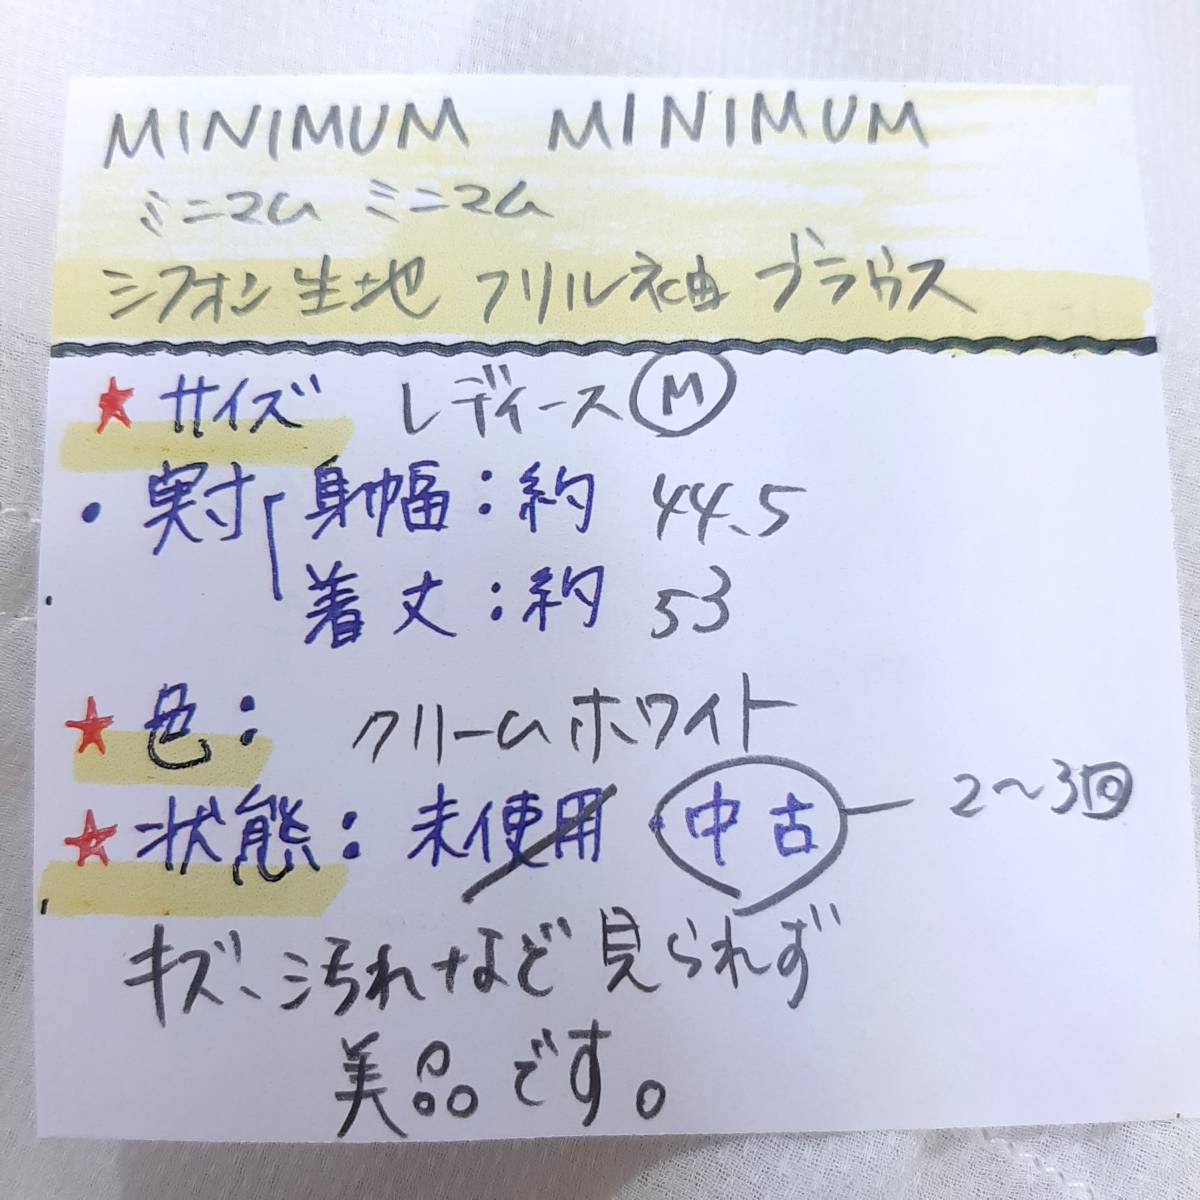 MINIMUM MINIMUM
ミニマム ミニマム
シフォン生地 フリル袖 ブラウス
★サイズ レディースM
・実寸 身幅：約 44.5
着丈：約 53
★色： クリームホワイト
★状態：未使用 中古 — 2〜3回
キズ、汚れなど見られず
美品です。